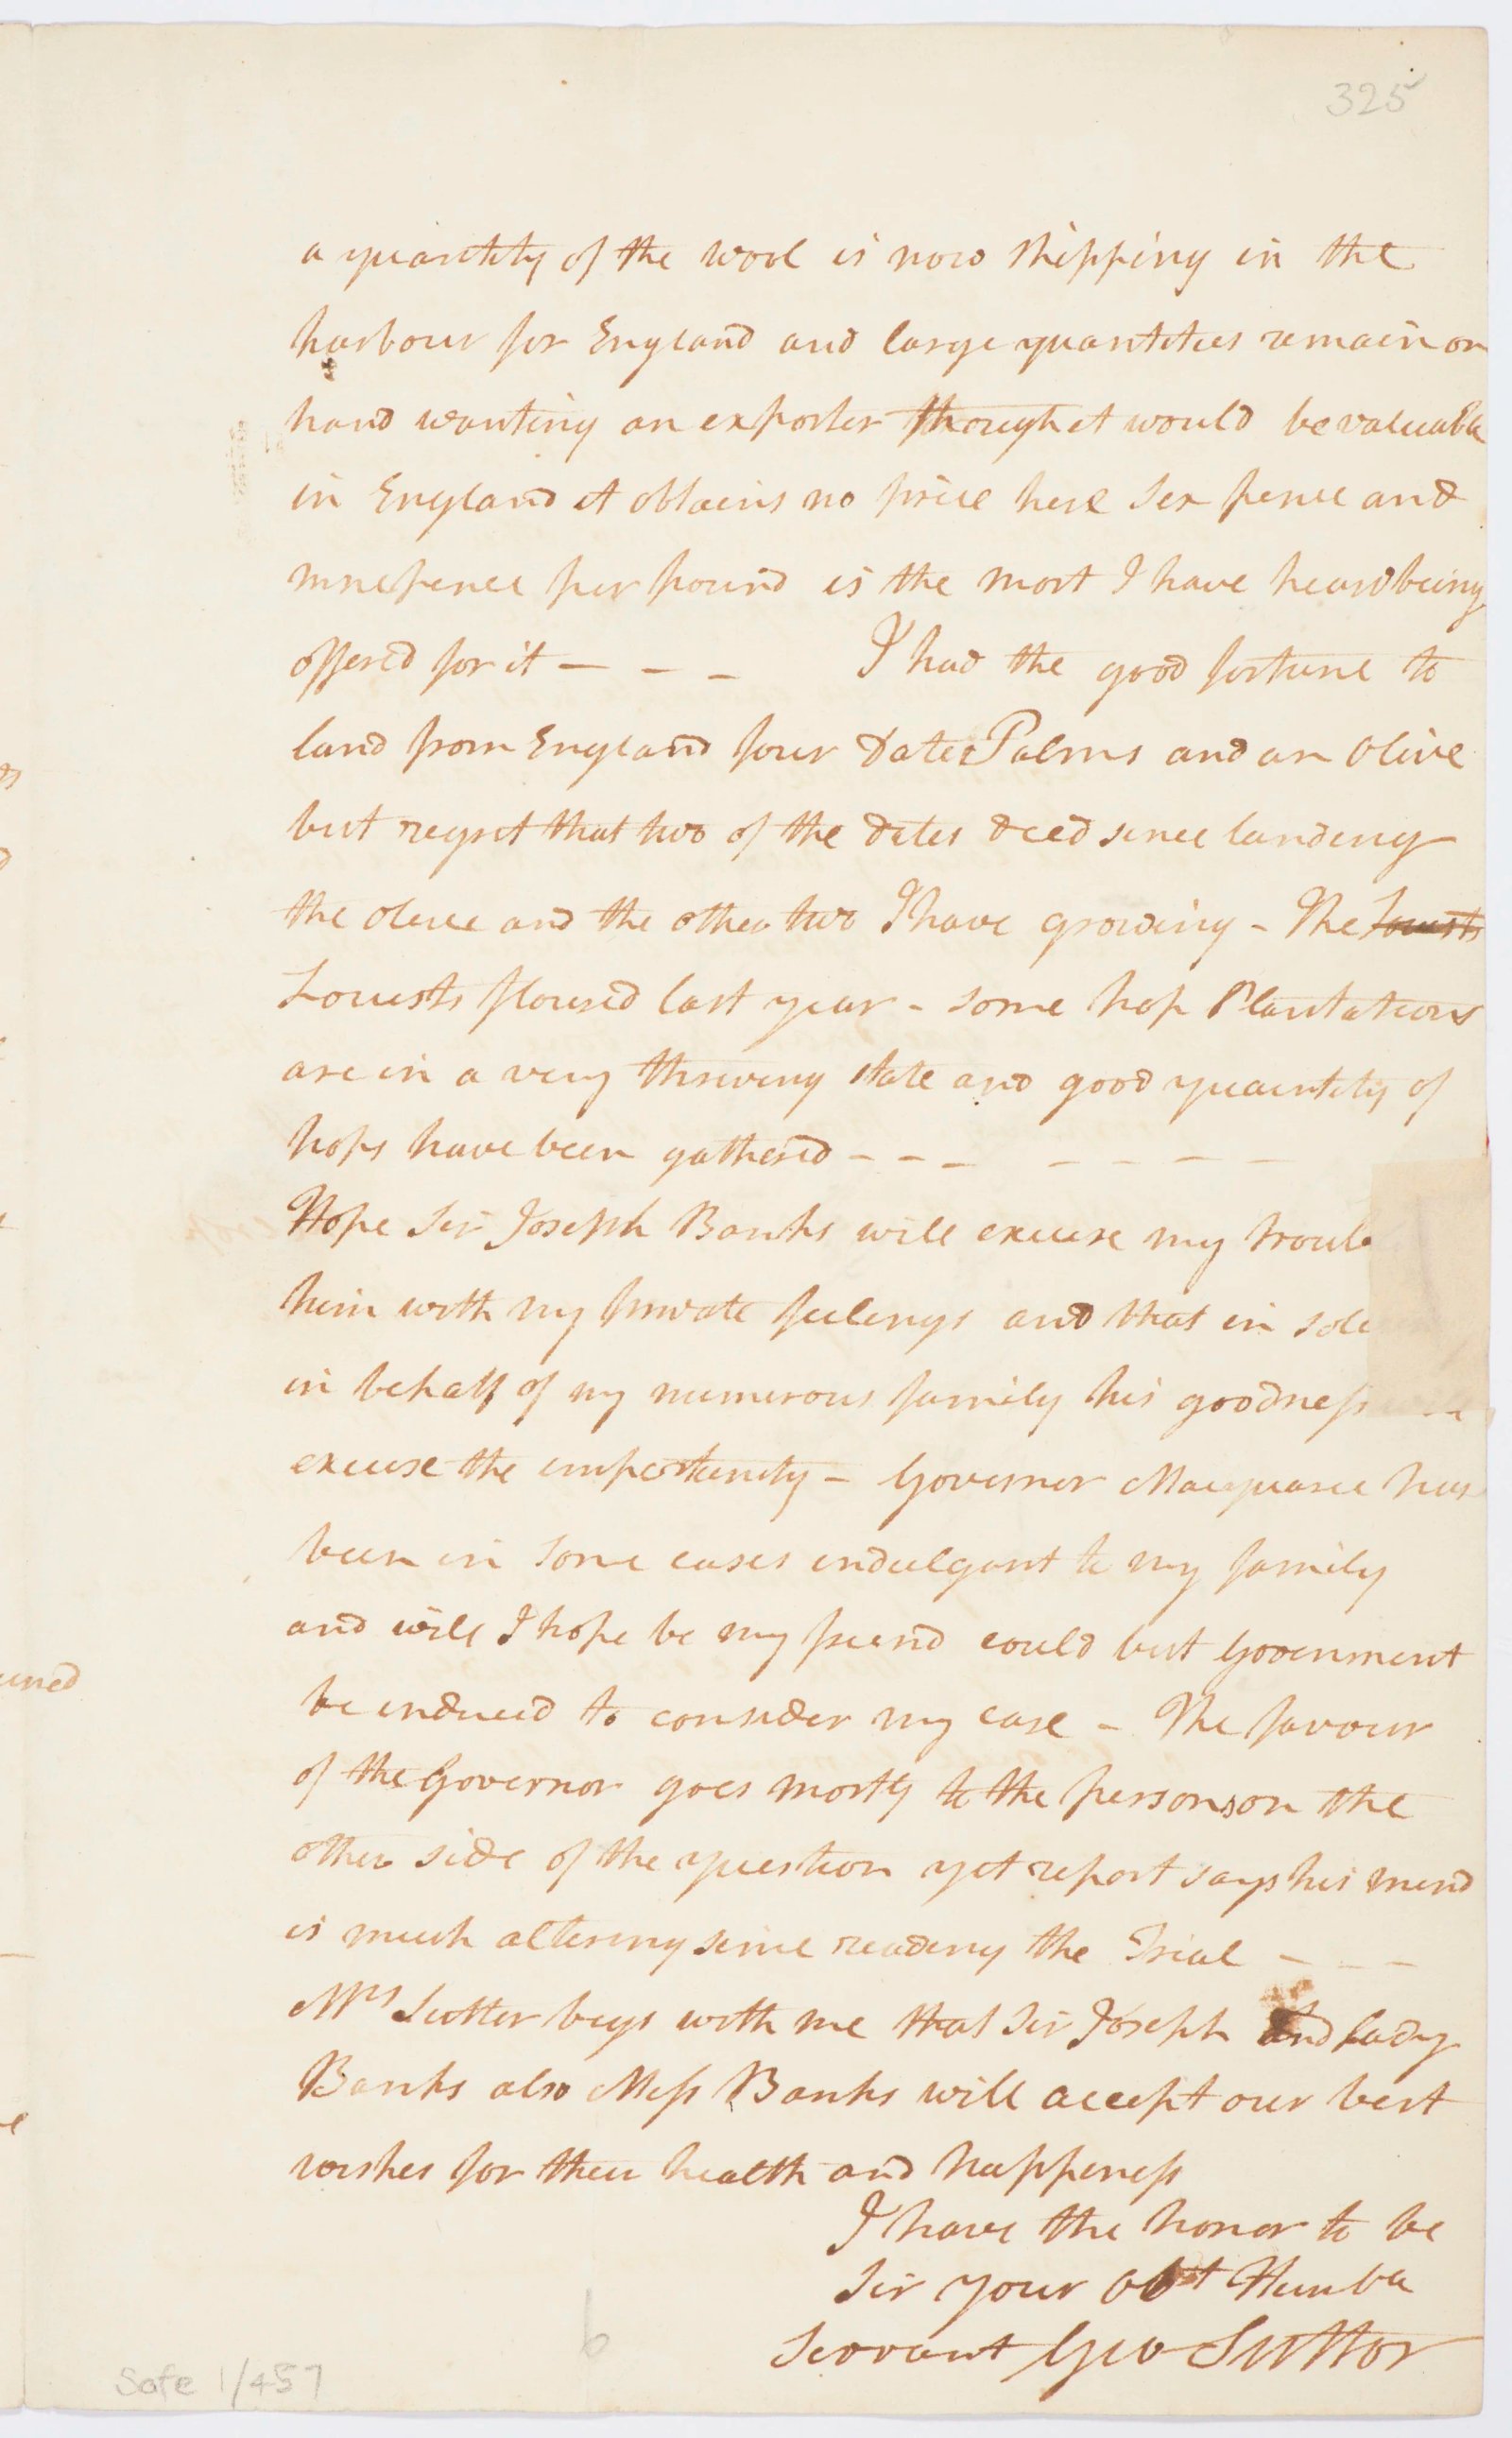 325
a quantity of the wool is now shipping in the
harbour for England and large quantities remain on
hand wanting an exporter though it would be valuable
in England it obtains no price here six pence and
ninepence per pound is the most I have heard being
offered for it — — — I had the good fortune to
land from England four Date Palms and an Olive
but regret that two of the dates died since landing
the olive and the other two I have growing - The Locusts
Locusts floured last year - some hop Plantations
are in a very thriving state and good quantity of
hops have been gathered - - - - - - -
Hope Sir Joseph Banks will excuse my trouble
him with my private feelings and that in
in behalf of my numerous family his goodness
excuse the importunity - Governor Macquarie has
been in some cases indulgant to my family
and will I hope be my friend could but Goverment
be induced to consider my case - The favour
of the Governor goes mostly to the persons on the
other side of the question yet report says his mind
is much altering since reading the Trial - - -
Mrs Suttor begs with me that Sir Joseph and Lady
Banks also Miss Banks will accept our best
wishes for their health and happiness
I have the honor to be
Sir your obt Humble
Servant Geo Suttor
uned
b
Safe 1/457